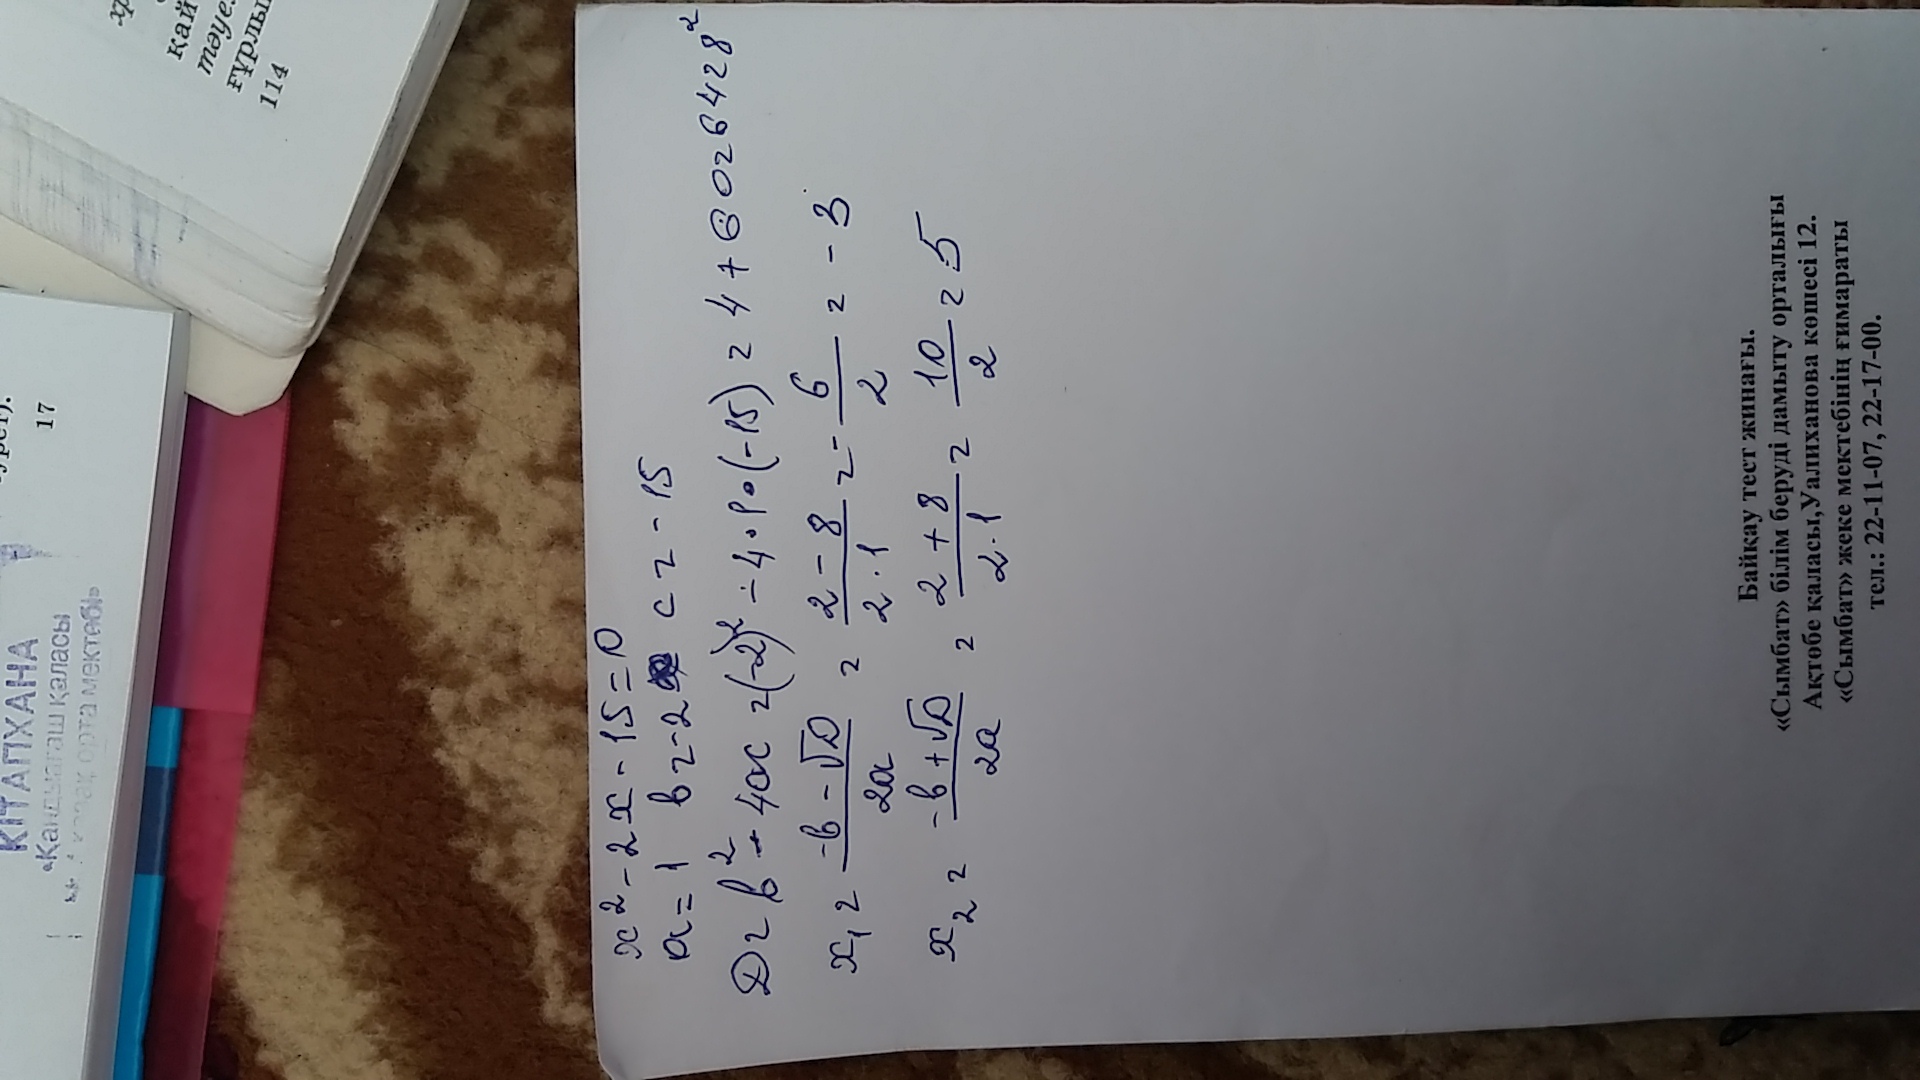 x² - 2x - 15 = 0
a = 1 b = -2 c = -15
D = b² - 4ac = (-2)² - 4·1·(-15) = 4 + 60 = 64 = 8²
x₁ = -b - √D / 2a = 2 - 8 / 2·1 = - 6 / 2 = -3
x₂ = -b + √D / 2a = 2 + 8 / 2·1 = 10 / 2 = 5
Байқау тест жинағы.
«Сымбат» білім беруді дамыту орталығы
Ақтөбе қаласы,Уалиханова көшесі 12.
«Сымбат» жеке мектебінің ғимараты
тел.: 22-11-07, 22-17-00.
қай
тәуе
ғұрлы
114
17
КІТАПХАНА
қаласы
орта мектебі»